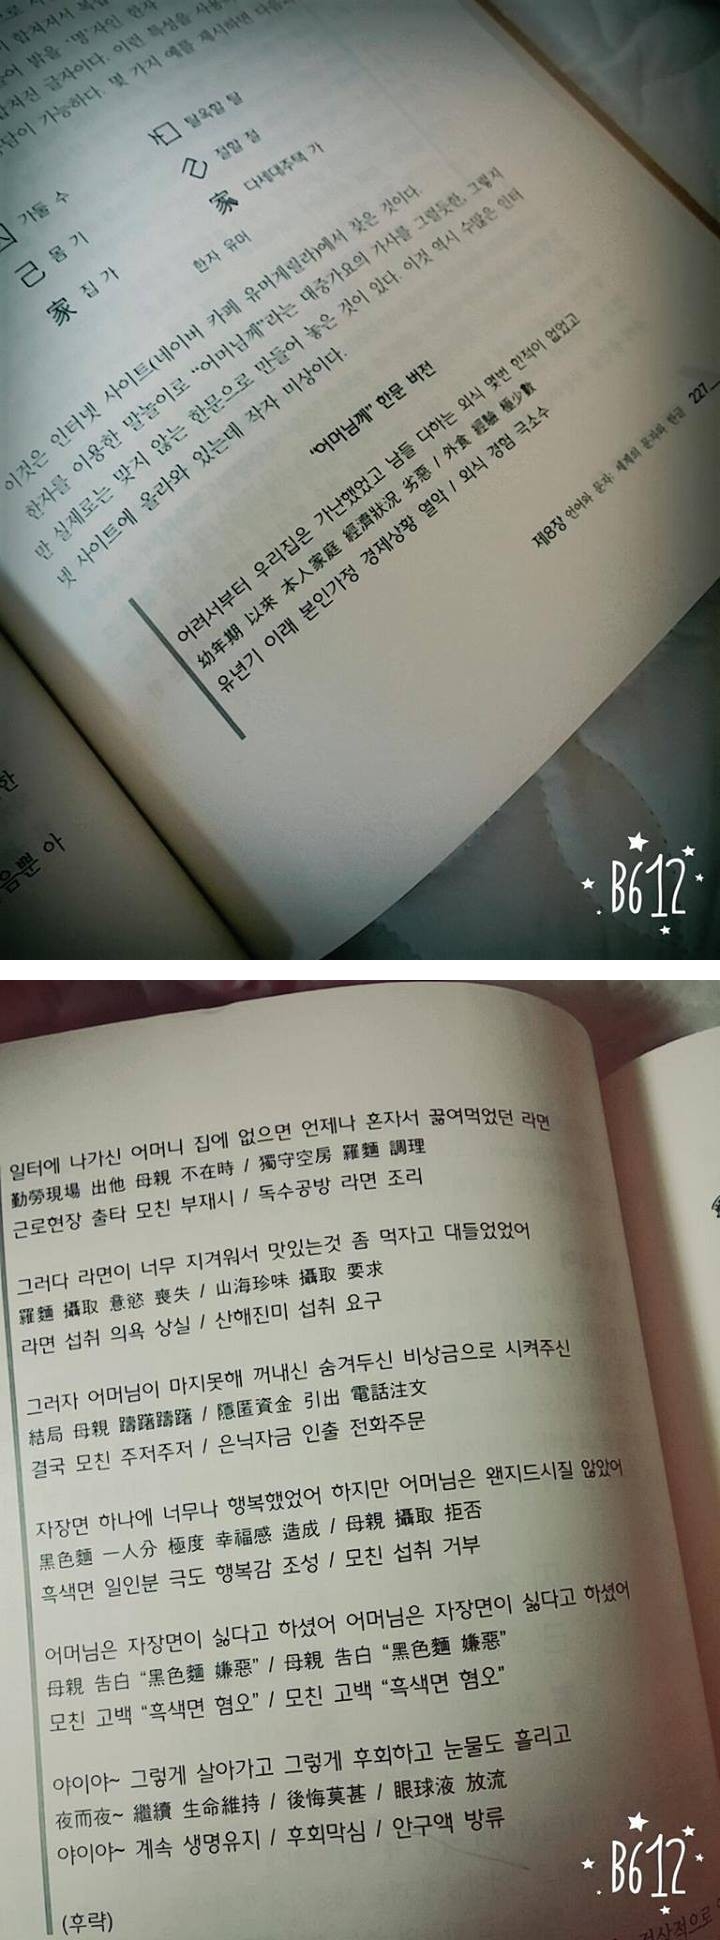 합쳐진 글자이다. 이런 특성을 사용
가능하다. 몇 가지 예를 제시하면 다음
가둘 수
탈옥할 탈
己 몸 기
접할 절
家 집 가
家 다세대주택 가
한자 유머
이것은 인터넷 사이트(네이버 카페 유머게릴라)에서 찾은 것이다.
한자를 이용한 말놀이로 “어머님께”라는 대중가요의 가사를 그럴듯한, 그렇지
만 실제로는 맞지 않는 한문으로 만들어 놓은 것이 있다. 이것 역시 수많은 인터
넷 사이트에 올라와 있는데 작자 미상이다.
“어머님께” 한문 버전
어려서부터 우리집은 가난했었고 남들 다하는 외식 몇번 한적이 없었고
幼年期 以來 本人家庭 經濟狀況 劣惡 / 外食 經驗 極少數
유년기 이래 본인가정 경제상황 열악 / 외식 경험 극소수
제8장 언어와 문자: 세계의 문자와 한글 227
한
음뿐 아
B612
일터에 나가신 어머니 집에 없으면 언제나 혼자서 끓여먹었던 라면
勤勞現場 出他 母親 不在時 / 獨守空房 羅麵 調理
근로현장 출타 모친 부재시 / 독수공방 라면 조리
그러다 라면이 너무 지겨워서 맛있는것 좀 먹자고 대들었었어
羅麵 攝取 意慾 喪失 / 山海珍味 攝取 要求
라면 섭취 의욕 상실 / 산해진미 섭취 요구
그러자 어머님이 마지못해 꺼내신 숨겨두신 비상금으로 시켜주신
結局 母親 躊躇躊躇 / 隱匿資金 引出 電話注文
결국 모친 주저주저 / 은닉자금 인출 전화주문
자장면 하나에 너무나 행복했었어 하지만 어머님은 왠지드시질 않았어
黑色麵 一人分 極度 幸福感 造成 / 母親 攝取 拒否
흑색면 일인분 극도 행복감 조성 / 모친 섭취 거부
어머님은 자장면이 싫다고 하셨어 어머님은 자장면이 싫다고 하셨어
母親 告白 “黑色麵 嫌惡” / 母親 告白 “黑色麵 嫌惡”
모친 고백 “흑색면 혐오” / 모친 고백 “흑색면 혐오”
야이야~ 그렇게 살아가고 그렇게 후회하고 눈물도 흘리고
夜而夜~ 繼續 生命維持 / 後悔莫甚 / 眼球液 放流
야이야~ 계속 생명유지 / 후회막심 / 안구액 방류
(후략)
B612